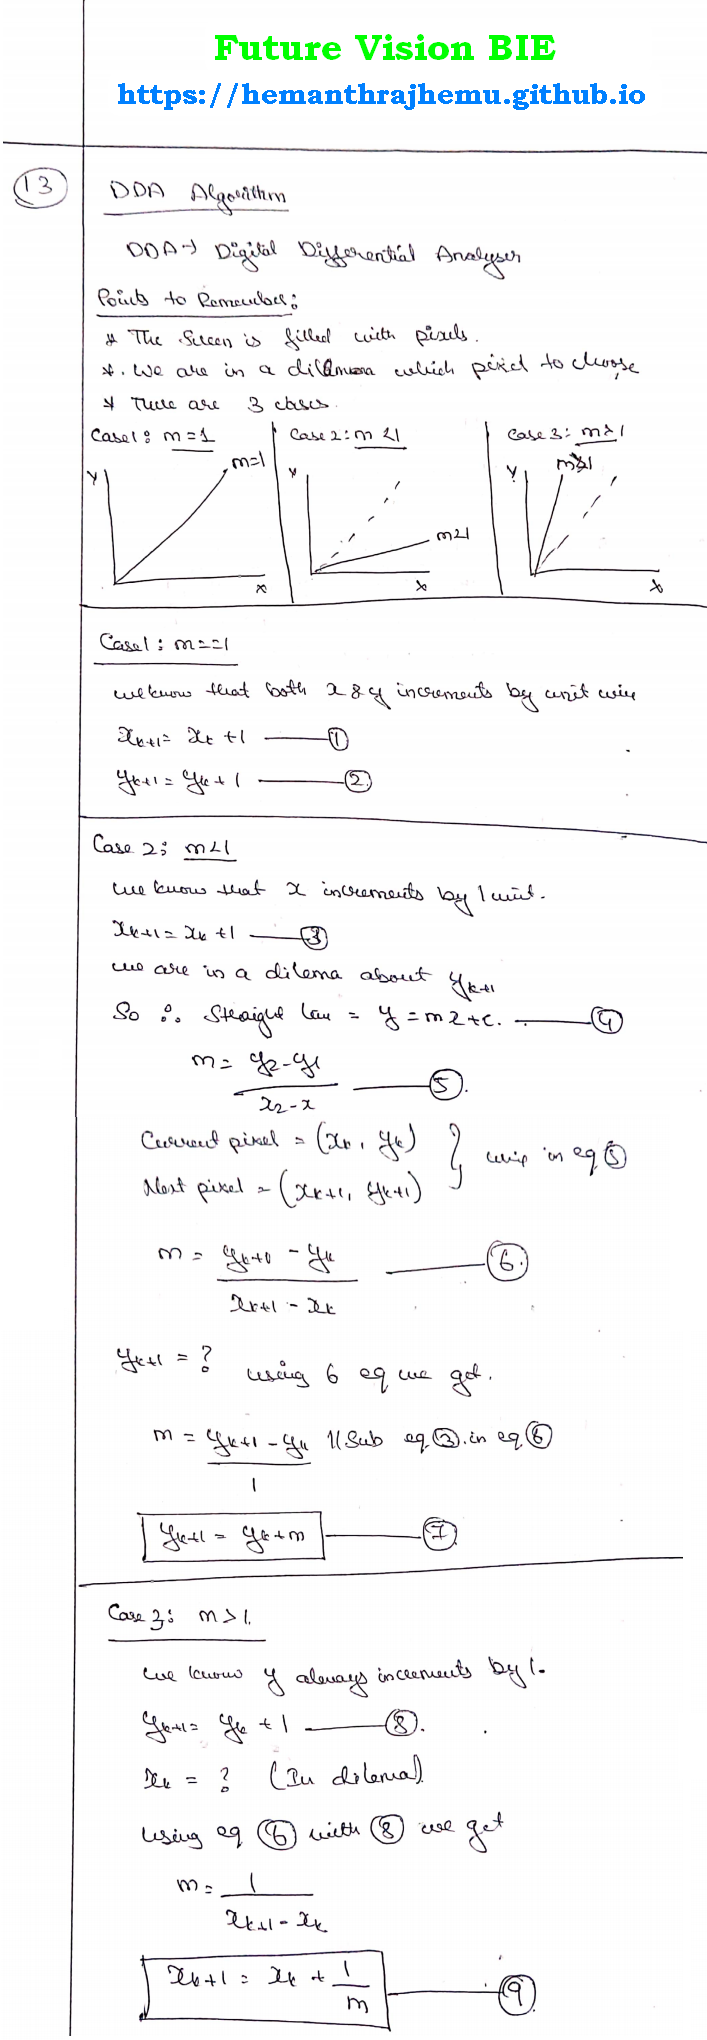 Future Vision BIE
https://hemanthrajhemu.github.io
13
DDA Algorithm
DDA → Digital Differential Analyser
Points to Remember:
* The Screen is filled with pixels.
*. We are in a dilemma which pixel to choose
* There are 3 cases.
Case1: m=1
Case 2: m<1
Case 3: m>1
Y
m=1
X
Y
m<1
X
Y
m>1
X
Case1: m==1
we know that both x & y increments by unit
xk+1 = xk + 1 ——— 1
yk+1 = yk + 1 ——— 2
Case 2: m<1
we know that x increments by 1 unit.
xk+1 = xk + 1 ——— 3
we are in a dilema about yk+1
So ∴ Straight = y = mx+c. ——— 4
m = y2-y1 / x2-x ——— 5.
Current pixel = (xk, yk)
Next pixel = (xk+1, yk+1)
} in eq 5
m = yk+1 - yk / xk+1 - xk ——— 6.
yk+1 = ? using 6 eq we get.
m = yk+1 - yk / 1 //Sub eq 3. in eq 6
yk+1 = yk + m ——— 7
Case 3: m>1.
we know y always increments by 1.
yk+1 = yk + 1 ——— 8.
xk = ? (In dilema)
using eq 6 with 8 we get
m = 1 / xk+1 - xk
xk+1 = xk + 1/m ——— 9.